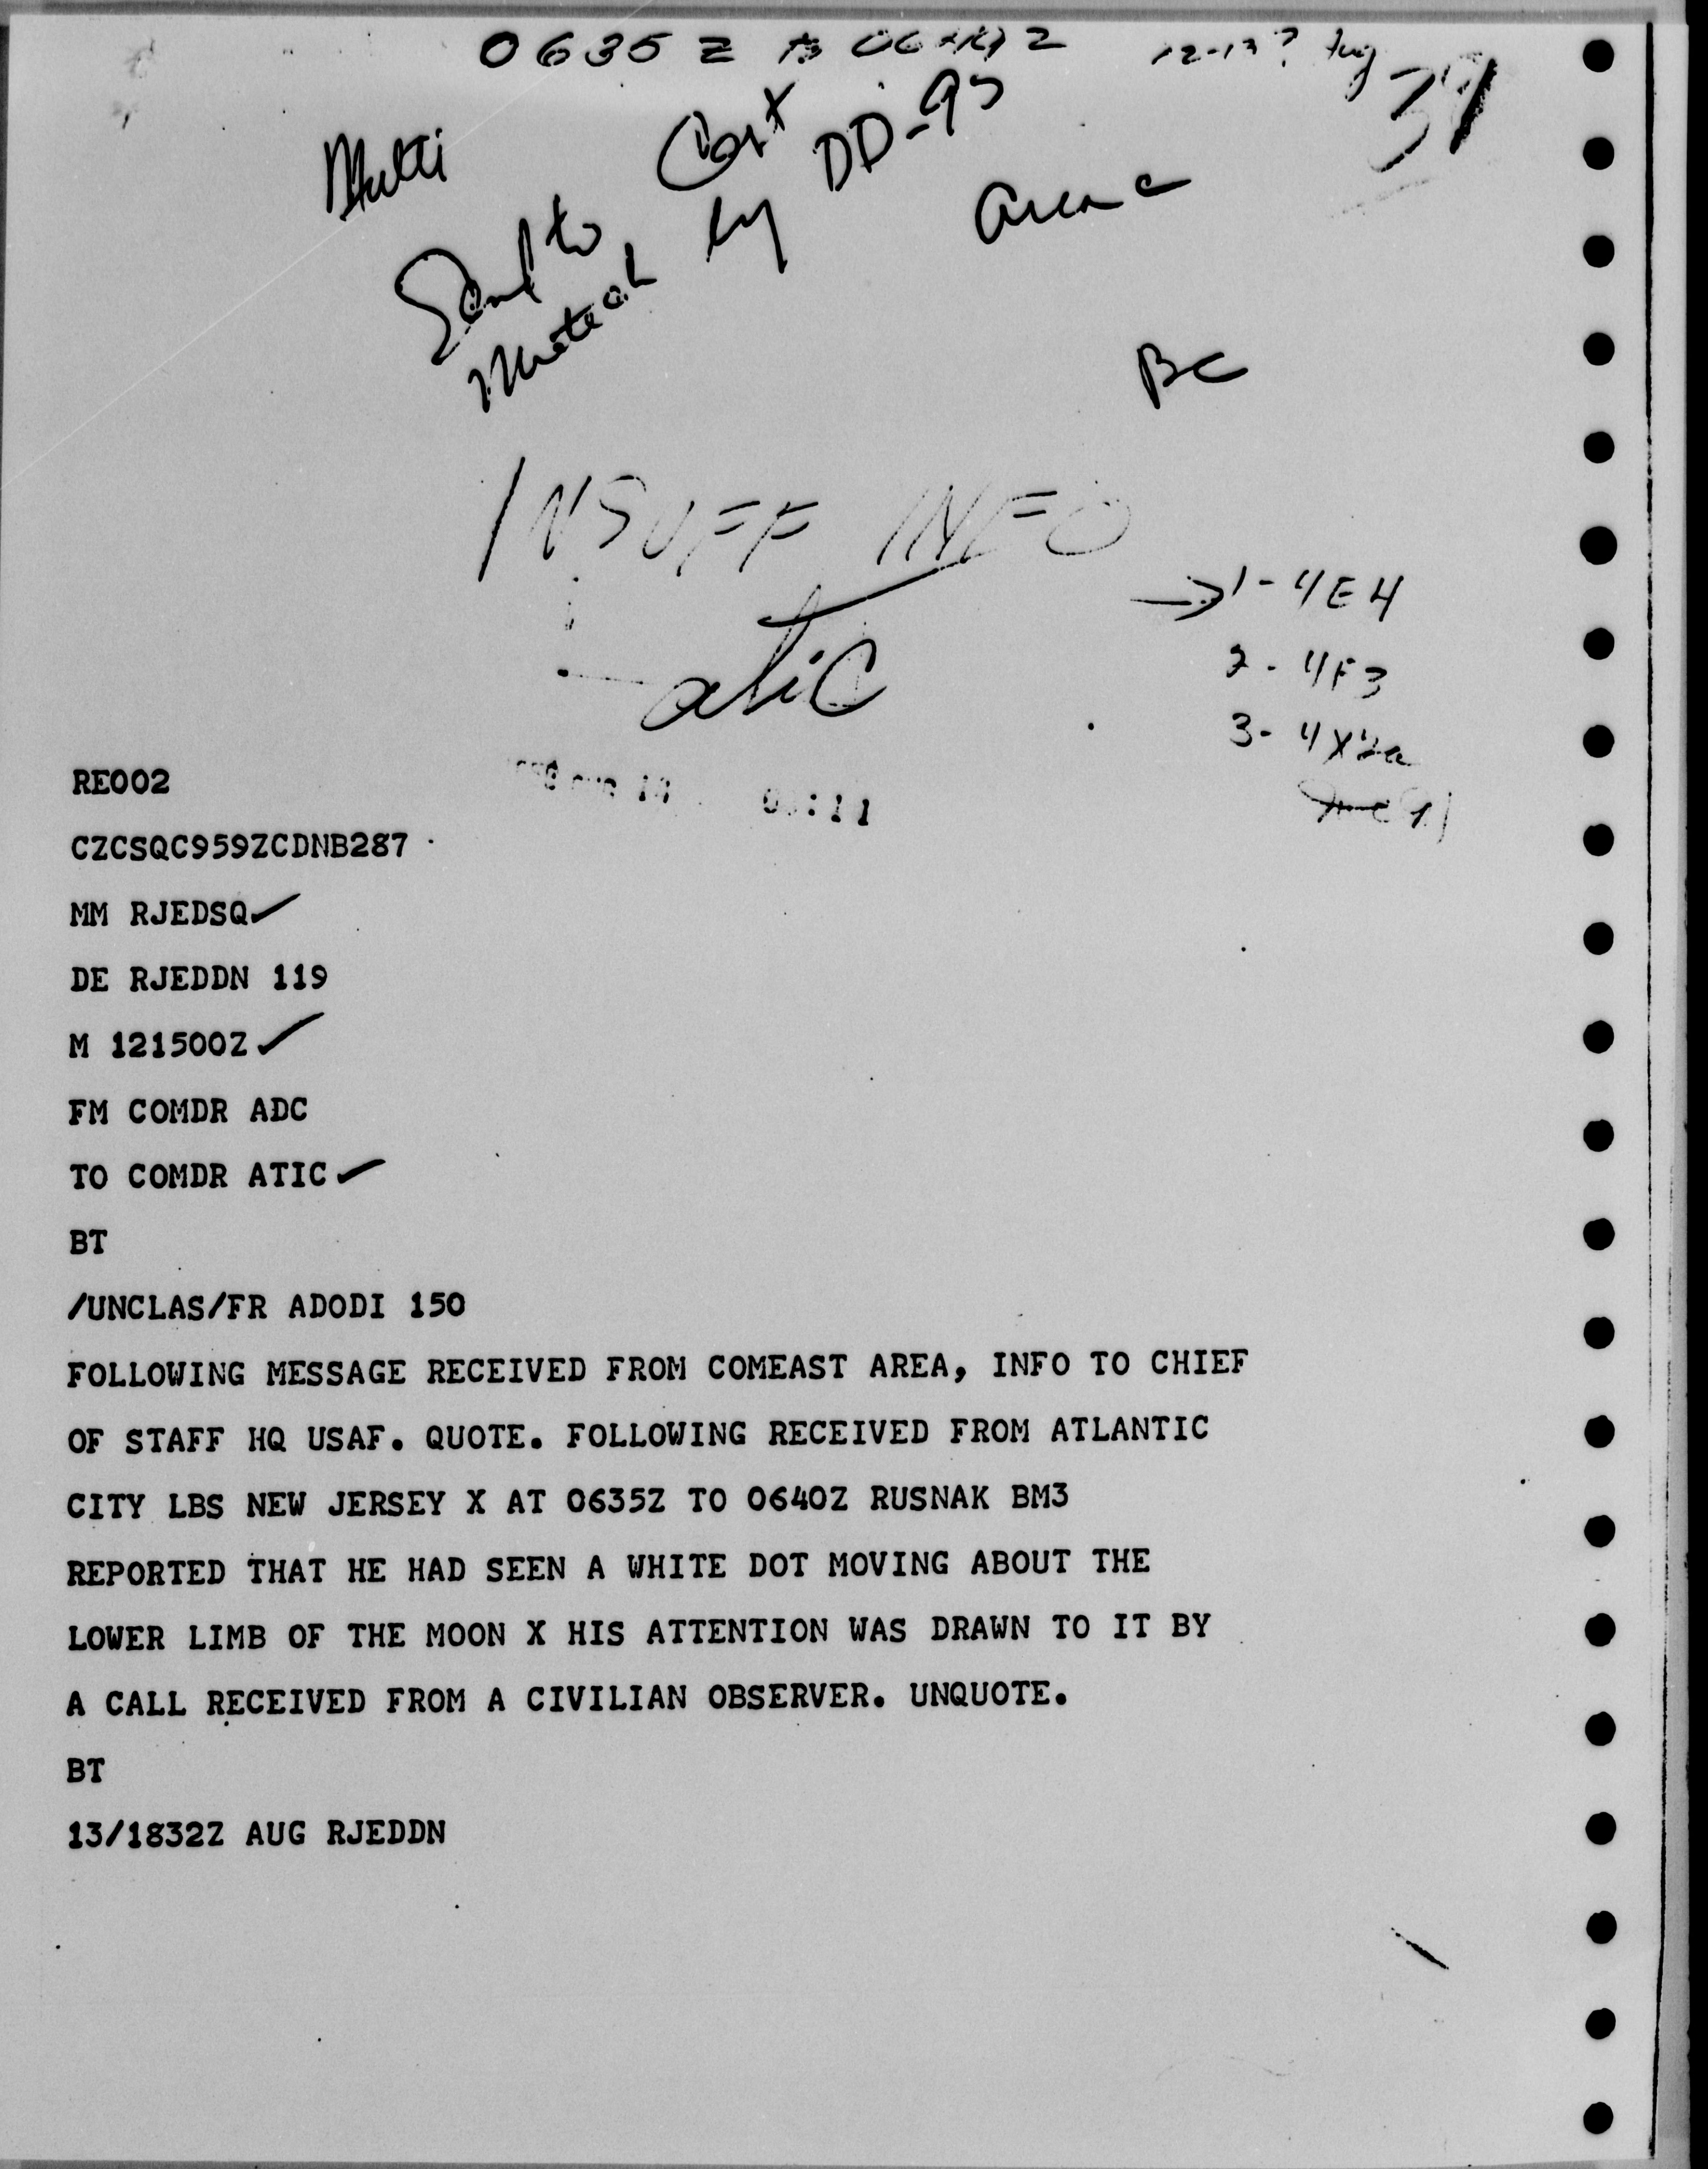 0635 Z to 0640 Z 12-13? Aug
Multi
Sent to
by DD-95
BC
INSUFF INFO
atiC
→ 1 - 4E4
2 - 4F3
3 - 4X2a
RE002
CZCSQC959ZCDNB287
MM RJEDSQ✓
DE RJEDDN 119
M 121500Z✓
FM COMDR ADC
TO COMDR ATIC✓
BT
/UNCLAS/FR ADODI 150
FOLLOWING MESSAGE RECEIVED FROM COMEAST AREA, INFO TO CHIEF
OF STAFF HQ USAF. QUOTE. FOLLOWING RECEIVED FROM ATLANTIC
CITY LBS NEW JERSEY X AT 0635Z TO 0640Z RUSNAK BM3
REPORTED THAT HE HAD SEEN A WHITE DOT MOVING ABOUT THE
LOWER LIMB OF THE MOON X HIS ATTENTION WAS DRAWN TO IT BY
A CALL RECEIVED FROM A CIVILIAN OBSERVER. UNQUOTE.
BT
13/1832Z AUG RJEDDN